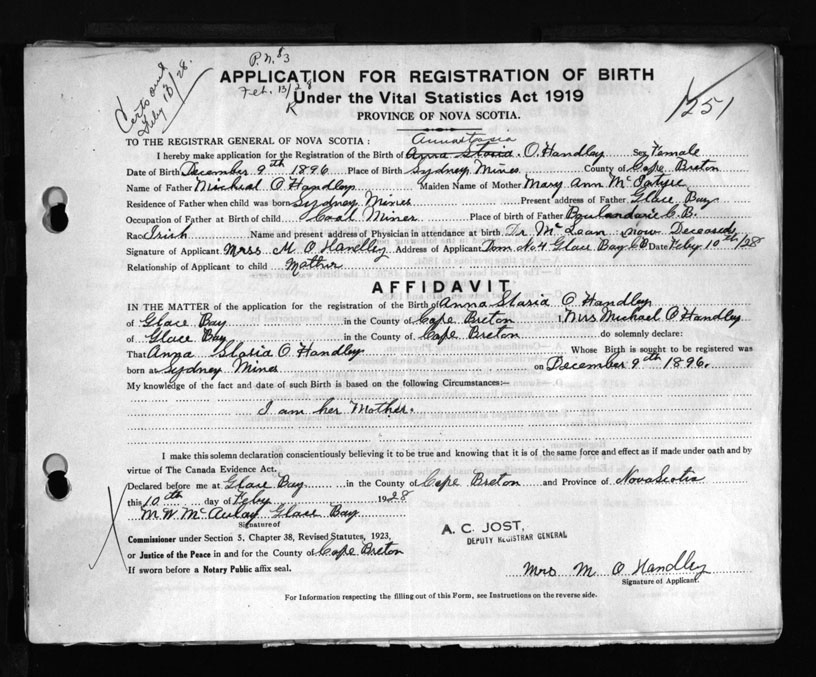 Certs out
Feby 13/28.
P.N. $3
Feb. 13/28
K
1251
APPLICATION FOR REGISTRATION OF BIRTH
Under the Vital Statistics Act 1919
PROVINCE OF NOVA SCOTIA.
TO THE REGISTRAR GENERAL OF NOVA SCOTIA: Annastasia
I hereby make application for the Registration of the Birth of Anna Stasia O. Handley Sex Female
Date of Birth December 9th 1896 Place of Birth Sydney Mines County of Cape Breton
Name of Father Micheal O Handley Maiden Name of Mother Mary Ann McIntyre
Residence of Father when child was born Sydney Mines Present address of Father Glace Bay
Occupation of Father at Birth of child Coal Miner Place of birth of Father Boulardarie C.B.
Race Irish Name and present address of Physician in attendance at birth Dr. McLean now Deceased
Signature of Applicant Mrss M. O Handley Address of Applicant Tom No. 4 Glace Bay CB Date Feby 10th/28
Relationship of Applicant to child Mother
AFFIDAVIT
IN THE MATTER of the application for the registration of the Birth of Anna Stasia O Handley
of Glace Bay in the County of Cape Breton I, Mrs Michael O Handley
of Glace Bay in the County of Cape Breton do solemnly declare:
That Anna Stasia O. Handley Whose Birth is sought to be registered was
born at Sydney Mines on December 9th 1896.
My knowledge of the fact and date of such Birth is based on the following Circumstances:—
I am her Mother.
I make this solemn declaration conscientiously believing it to be true and knowing that it is of the same force and effect as if made under oath and by
virtue of The Canada Evidence Act.
Declared before me at Glace Bay in the County of Cape Breton and Province of Nova Scotia
this 10th day of Feby 1928
M. W. McAulay Glace Bay
Signature of
Commissioner under Section 5, Chapter 38, Revised Statutes, 1923,
or Justice of the Peace in and for the County of Cape Breton
If sworn before a Notary Public affix seal.
A. C. JOST,
DEPUTY REGISTRAR GENERAL
Mrs M O Handley
Signature of Applicant
For Information respecting the filling out of this Form, see Instructions on the reverse side.